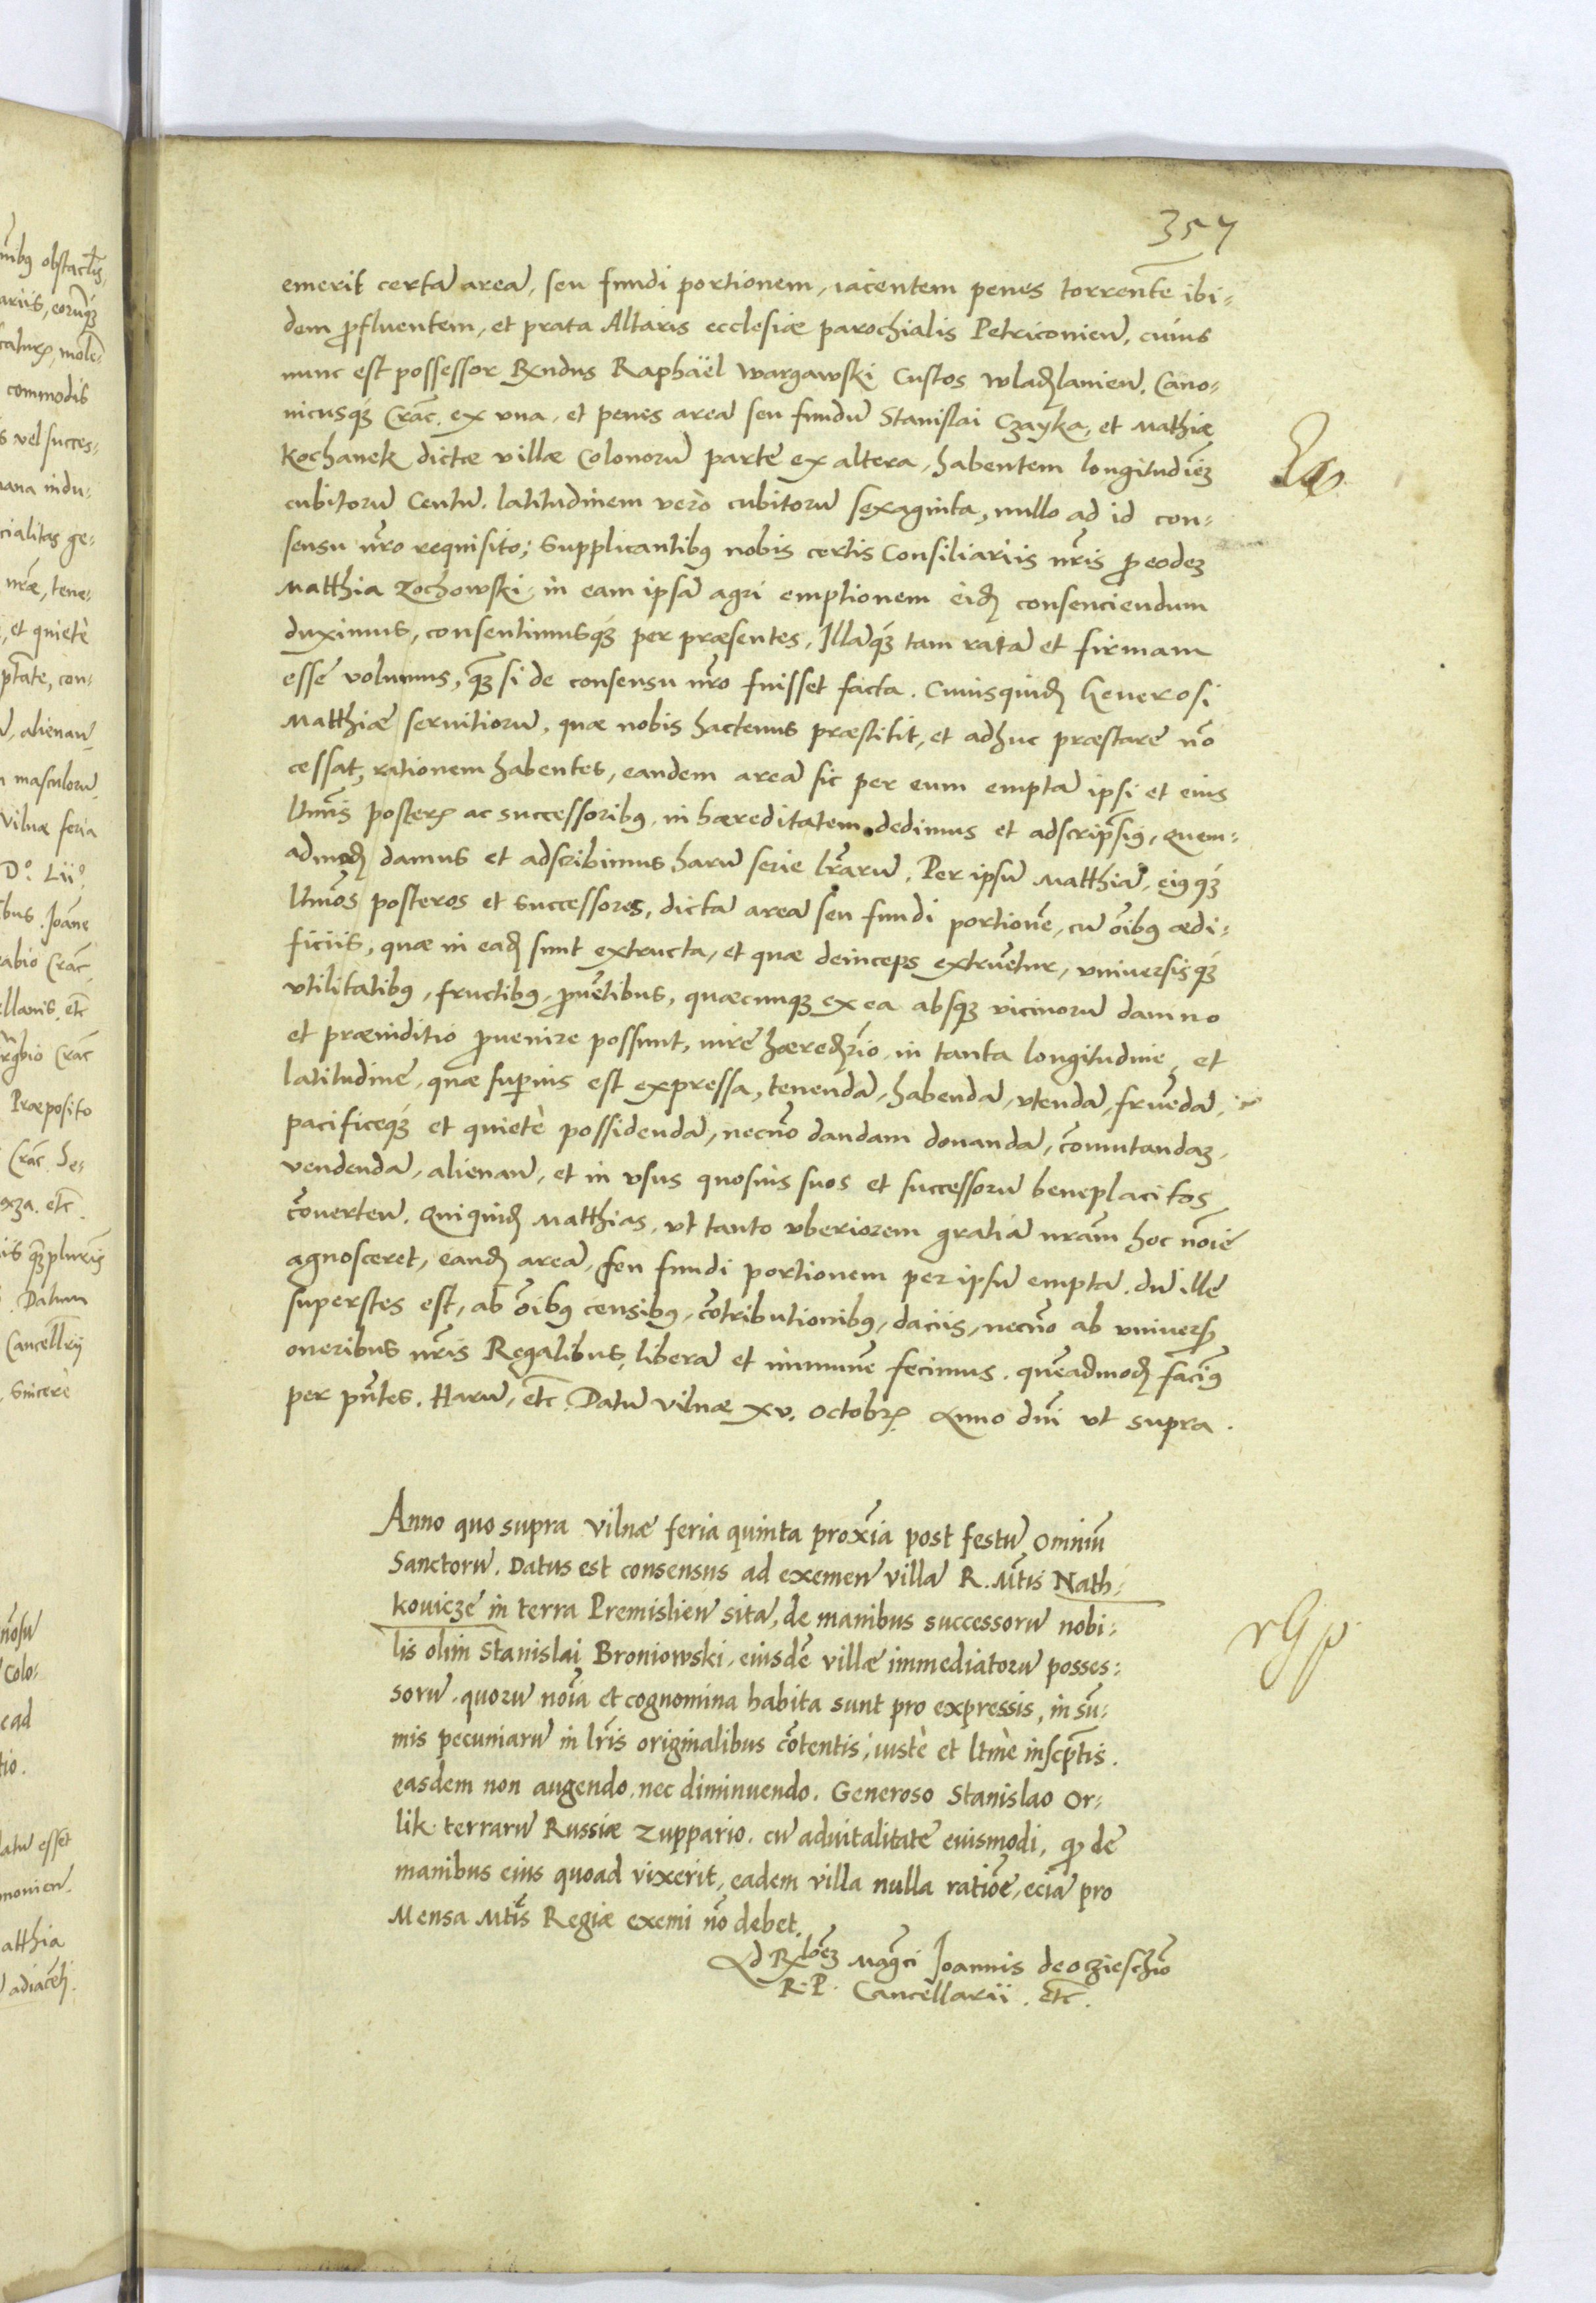 357
emerit certā areā, seu fundi portionem, iacentem penes torrentē ibi-
dem p̄fluentem, et prata Altaris ecclesiæ parochialis Petriconien̄, cuius
nunc est possessor Rx̄ndus Raphäel Wargawski Custos Wladꝫlauien̄. Cano-
nicusqꝫ Crāc. ex vna, et penes areā seu fundū Stanislai Czayka, et Mathiæ
Kochanek dictæ villæ Colonorū parte ex altera, habentem longitudiēꝫ
cubitorū Centū. latitudinem verò cubitorū sexaginta, nullo ad id con-
sensu nr̄o requisito; Supplicantibꝯ nobis certis Consiliariis nr̄is p̄ eodeꝫ
Matthia Zochowski, in eam ipsā agri emptionem eidꝫ consenciendum
duximus, consentimusqꝫ per præsentes. Illāqꝫ tam ratā et firmam
esse volumus, qꝫ si de consensu nr̄o fuisset facta. Cuiusquidꝫ Generosi
Matthiæ seruitiorū, quæ nobis hactenus præstitit, et adhuc præstare nō
cessat, rationem habentes, eandem areā sic per eum emptā ipsi et eius
ltīmis posterꝭ ac successoribꝯ, in hæreditatem dedimus et adscripsimꝯ, quem-
admodꝫ damus et adscribimus harū serie lr̄arū. Per ipsū Matthiā, eiꝯqꝫ
ltīmos posteros et successores, dictā areā seu fundi portionē, cū oībꝯ ædi-
ficiis, quæ in eadꝫ sunt extructa, et quæ deinceps extruētur, vniuersisqꝫ
vtilitatibꝯ, fructibꝯ, p̄uētibus, quæcunqꝫ ex ea absqꝫ vicinorū damno
et præiuditio p̄uenire possunt, iure hæredꝫrio, in tanta longitudine, et
latitudine, quæ sup̄ius est expressa, tenendā, habendā, vtendā, fruēdā,
pacificeqꝫ et quietè possidendā, necnō dandam donandā, cōmutandaꝫ,
vendendā, alienan̄, et in vsus quosuis suos et successorū beneplacitos
cōuerten̄. Quiquidꝫ Matthias, vt tanto vberiorem gratiā nrām hoc nōīe
agnosceret, eandꝫ areā, seu fundi portionem per ipsū emptā. dū ille
superstes est, ab oībꝯ censibꝯ, cōtributionibꝯ, daciis, necnō ab vniuersꝭ
oneribus nr̄is Regalibus, liberā et immunē fecimus. quēadmodꝫ facimꝯ
per pn̄tes. Harū, etc̄. Datū Vilnæ xv. Octobrꝭ Anno dn̄i vt supra.
Anno quo supra Vilnæ feria quinta proxīa post festū Omniū
Sanctorū. Datus est consensus ad exemen̄ villā R. Mt̄is Nath-
kouicze in terra Premislien̄ sitā, de manibus successorū nobi-
lis olim Stanislai Broniowski, eiusdē villæ immediatorū posses-
sorū, quorū noīa et cognomina habita sunt pro expressis, in sū-
mis pecuniarū in lr̄is originalibus cōtentis, iustè et ltīmè inscpt̄is.
easdem non augendo, nec diminuendo. Generoso Stanislao Or-
lik terrarū Russiæ Zuppario. cū aduitalitate eiusmodi, qꝫ de
manibus eius quoad vixerit, eadem villa nulla ratiōe, eciā pro
Mensa Mt̄is Regiæ exemi nō debet.
Ad Rx̄lōēꝫ Magc̄i Joannis de Oczieschīo
R. P. Cancellarii. etc̄.